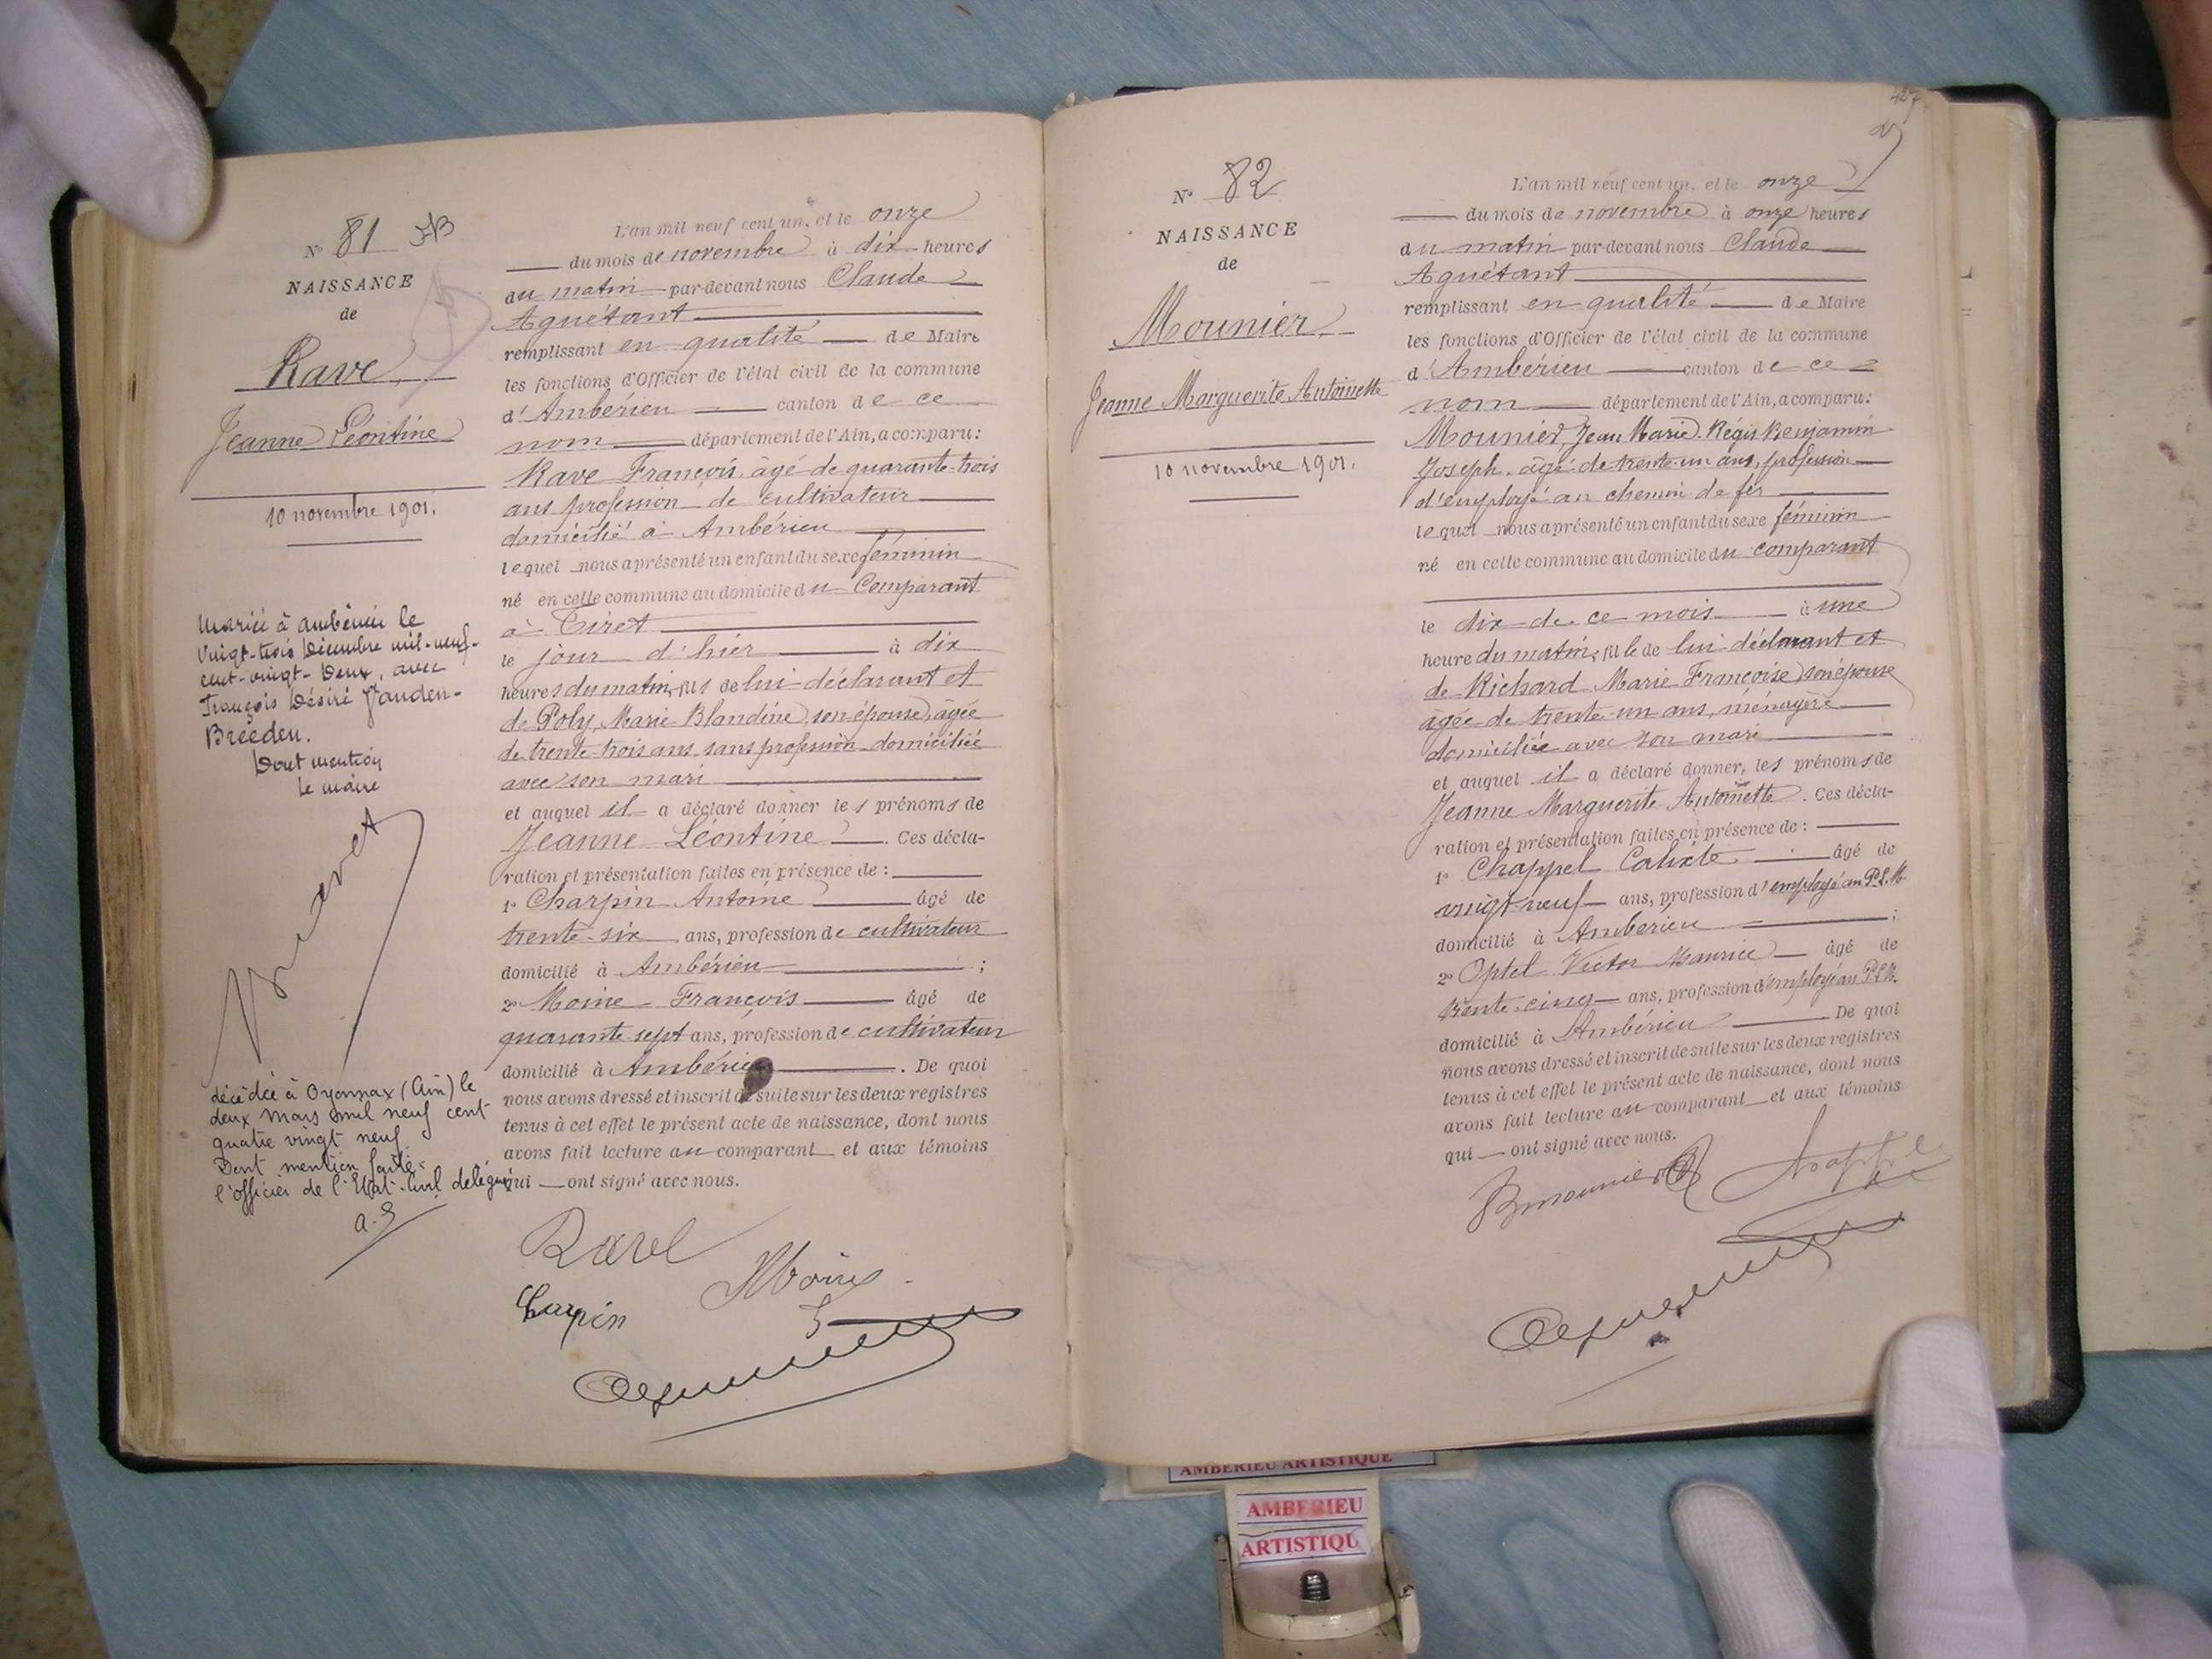 N° 81
NAISSANCE
de
Rave
Jeanne Léontine
10 novembre 1901.
Mariée à Ambérieu le
vingt-trois Décembre mil-neuf-
cent-vingt-Deux, avec
François Désiré
Breeden.
Dont mention
le maire
décédée à Oyonnax (Ain) le
deux mars mil neuf cent
quatre vingt neuf
Dont mention faite.
l'officier de l'Etat-Civil délégué
L'an mil neuf cent un, et le onze
du mois de novembre à dix heures
du matin par-devant nous Claude
Aguétant
remplissant en qualité de Maire
les fonctions d'Officier de l'état civil de la commune
d'Ambérieu canton de ce
nom département de l'Ain, a comparu:
Rave François, âgé de quarante-trois
ans profession de cultivateur
domicilié à Ambérieu
lequel nous a présenté un enfant du sexe féminin
né en cette commune au domicile du Comparant
à Tiret
le jour d'hier à dix
heures du matin, fils de lui déclarant et
de Poly, Marie Blandine, son épouse, âgée
de trente-trois ans sans profession domiciliée
avec son mari
et auquel il a déclaré donner les prénoms de
Jeanne Léontine. Ces décla-
ration et présentation faites en présence de:
1° Charpin Antoine âgé de
trente-six ans, profession de cultivateur
domicilié à Ambérieu;
2° Moine François âgé de
quarante sept ans, profession de cultivateur
domicilié à Ambérieu. De quoi
nous avons dressé et inscrit de suite sur les deux registres
tenus à cet effet le présent acte de naissance, dont nous
avons fait lecture au comparant et aux témoins
qui ont signé avec nous.
Ravel
Moine
Carpin
N° 82
NAISSANCE
de
Mounier
Jeanne Marguerite Antoinette
10 novembre 1901.
L'an mil neuf cent un, et le onze
du mois de novembre à onze heures
du matin par-devant nous Claude
Aguétant
remplissant en qualité de Maire
les fonctions d'Officier de l'état civil de la commune
d'Ambérieu canton de ce
nom département de l'Ain, a comparu:
Mounier, Jean Marie Régis Benjamin
Joseph, âgé de trente-un ans, profession
d'employé au chemin de fer
lequel nous a présenté un enfant du sexe féminin
né en cette commune au domicile du comparant
le dix de ce mois à une
heure du matin, fille de lui déclarant et
de Richard Marie Françoise, son épouse
âgée de trente-un ans, ménagère
domiciliée avec son mari
et auquel il a déclaré donner, les prénoms de
Jeanne Marguerite Antoinette. Ces décla-
ration et présentation faites en présence de:
1° Chappel Calixte âgé de
vingt-neuf ans, profession d'employé au P.L.M.
domicilié à Ambérieu;
2° Optel Victor Maurice âgé de
trente-cinq ans, profession d'employé au P.L.M.
domicilié à Ambérieu De quoi
nous avons dressé et inscrit de suite sur les deux registres
tenus à cet effet le présent acte de naissance, dont nous
avons fait lecture au comparant et aux témoins
qui ont signé avec nous.
AMBERIEU ARTISTIQUE
AMBERIEU
ARTISTIQU